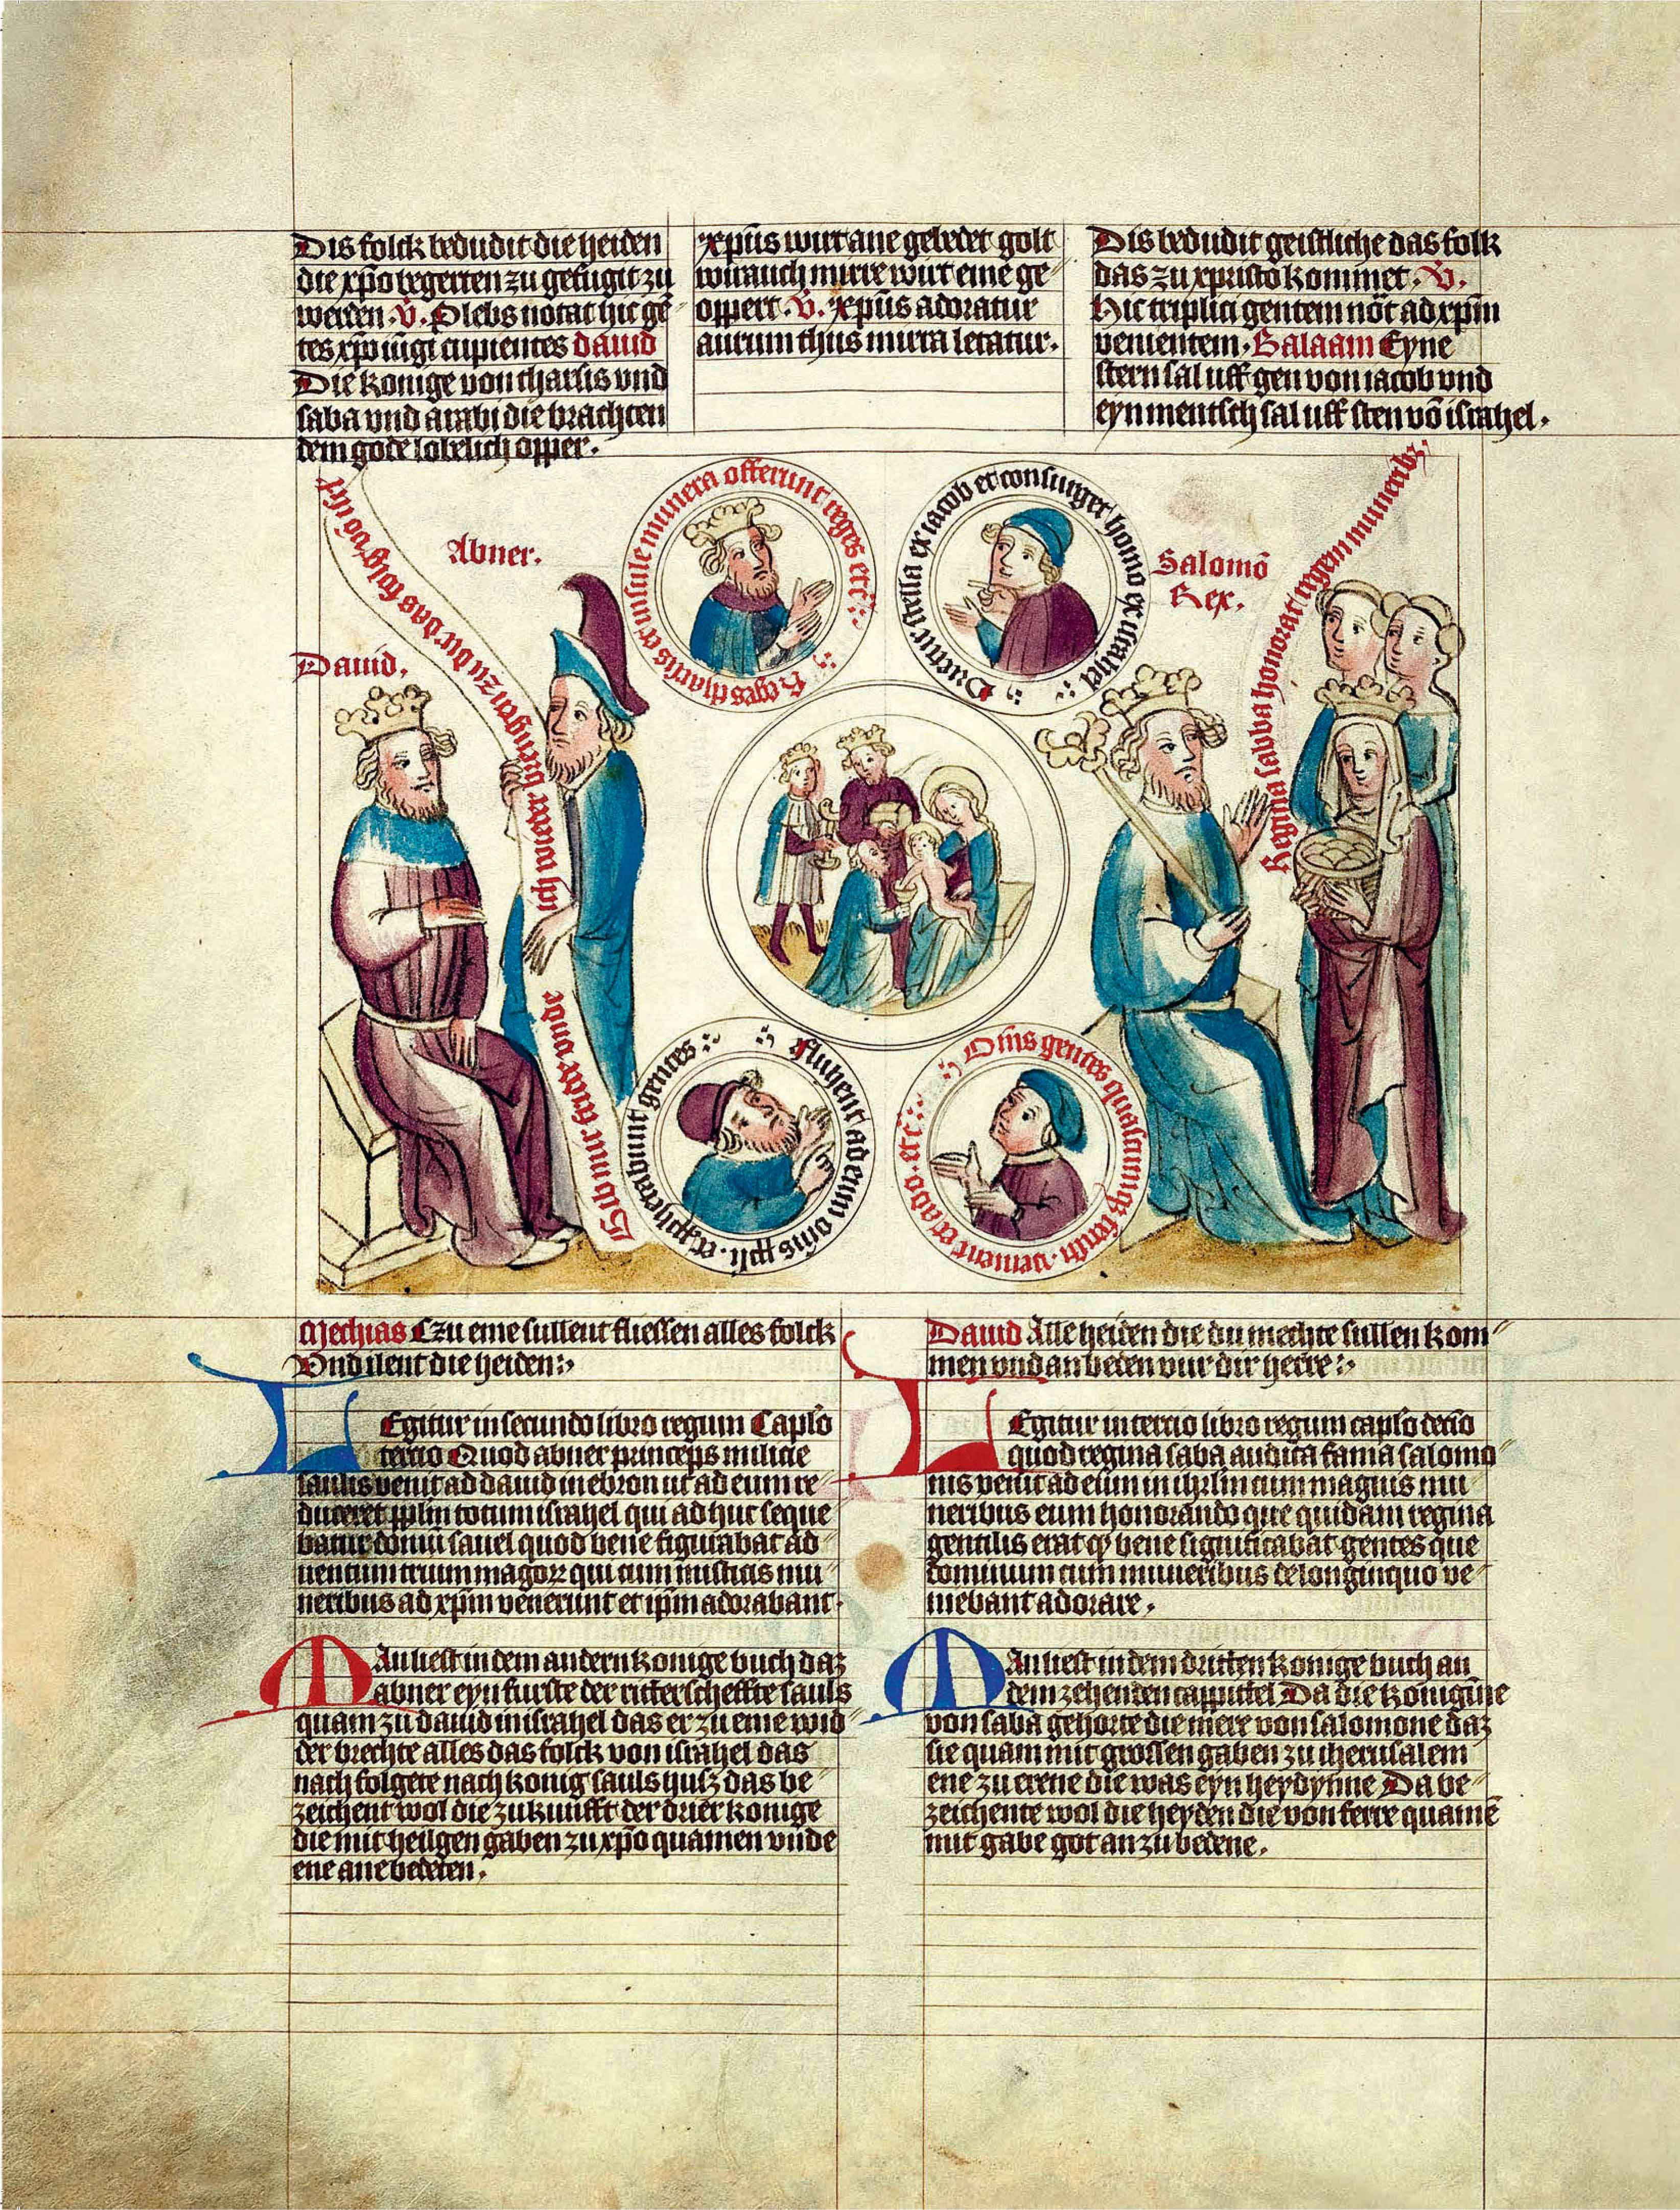 Dis folck bedudit die heiden
die xp̄o begerten zu gefugit zu
werden. v̄. Plebs notat hic gē
tes xp̄o iūgi cupientes dauid
Die konige von tharsis vnd
saba vnd arabi die brachten
dem gode lobelich opper.
xp̄us wirt ane gebedet golt
wirauch mirre wirt eme ge
oppert. v̄. xp̄us adoratur
aurum thus mirra letatur.
Dis bedudit geistliche das folk
das zu xpristo kommet. v̄.
Hic triplici gentem nōt ad xp̄m
venientem. Balaam Eyne
stern sal uff gen von iacob vnd
eyn mentsch sal uff sten vō israhel.
Abner.
Dauid.
ich wider brenge zu dir
Reges tharsis et insule munera offerunt reges etc̄
Orietur stella ex iacob et consurget homo ex israhel
Salomō
Rex.
Regina sabba honorat regem muneribꝫ
Fluent ad eum om̄s ppl̄i. et gentes
Om̄s gentes quascumqꝫ fecisti. venient et ado. etc̄
Mechias Czu eme sullent fliessen alles folck
Vnd ilent die heiden
Dauid Alle heiden die du mechte sullen kom
men vnd an beden vur dir herre
LEgitur in secundo libro regum Cap̄lo
tercio Quod abner princeps milicie
saulis venit ad dauid in ebron ut ad eum re
duceret pplm̄ totum israhel qui ad huc seque
batur domū sauel quod bene figurabat ad
uentum trium magoꝝ qui cum misticis mu
neribus ad xp̄m venerunt et ip̄m adorabant.
MAn liest in dem andern konige buch daz
abner eyn furste der ritterscheffte sauls
quam zu dauid in israhel das er zu eme wid
der brechte alles das folck von israhel das
nach folgete nach konig sauls husz das be
zeichent wol die zukunfft der drier konige
die mit heilgen gaben zu xp̄o quamen vnde
ene ane bedeten.
LEgitur in tercio libro regum cap̄lo decīo
quod regina saba audita fama salomo
nis venit ad eum in ihrlm̄ cum magnis mu
neribus eum honorando que quidam regina
gentilis erat qꝫ bene significabat gentes que
dominum cum muneribus de longinquo ve
niebant adorare.
MAn liest in dem dritten konige buch an
dem zehenden cappittel Da die konigīne
von saba gehorte die mere von salomone daz
sie quam mit grossen gaben zu iherusalem
ene zu erene die was eyn heydynne Da be
zeichente wol die heyden die von ferre quamē
mit gabe got an zu bedene.